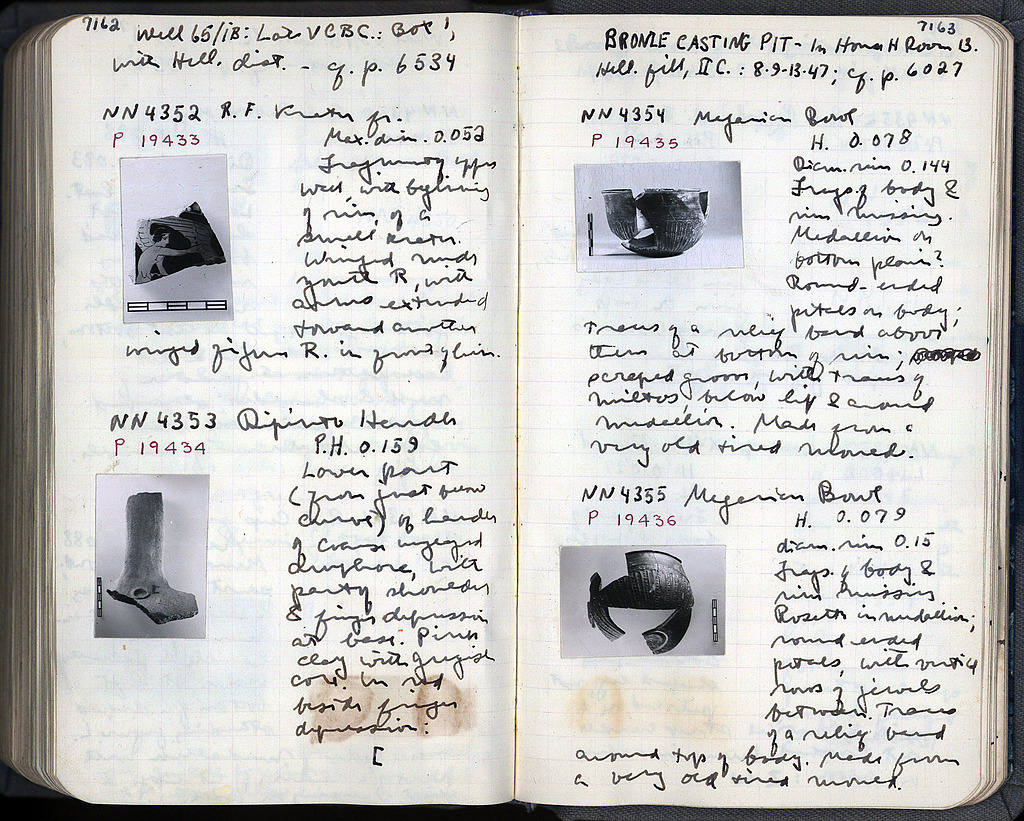 7162
Well 65/1B: Late V C B.C.: Box 1,
with Hell. dist. - cf. p. 6534
NN 4352 R. F. Krater fr.
P 19433
Max. dim. 0.052
Fragment of upper
wall, with beginning
of rim, of a
small krater.
Winged nude
youth R, with
arms extended
toward another
winged figure R. in
NN 4353 Dipinto Handle
P 19434
P.H. 0.159
Lower part
(from just below
curve) of handle
of coarse unglazed
amphora, with
part of shoulder
& finger depression
at base. Pink
clay with greyish
core. In red
beside finger
depression:
[
7163
BRONZE CASTING PIT - In House H Room 13.
Hell. fill, II C.: 8-9-13-47; cf. p. 6027
NN 4354 Megarian Bowl
P 19435
H. 0.078
Diam. rim 0.144
Frags of body &
rim missing.
Medallion on
bottom plain?
Round-ended
petals on body;
Traces of a relief band above
them at bottom of rim;
scraped groove, with traces of
miltos, below lip & around
medallion. Made from a
very old tired mould.
NN 4355 Megarian Bowl
P 19436
H. 0.079
diam. rim 0.15
Frags. of body &
rim missing
Rosette in medallion;
round ended
petals, with vertical
rows of jewels
between. Traces
of a relief band
around top of body. Made from
a very old tired mould.